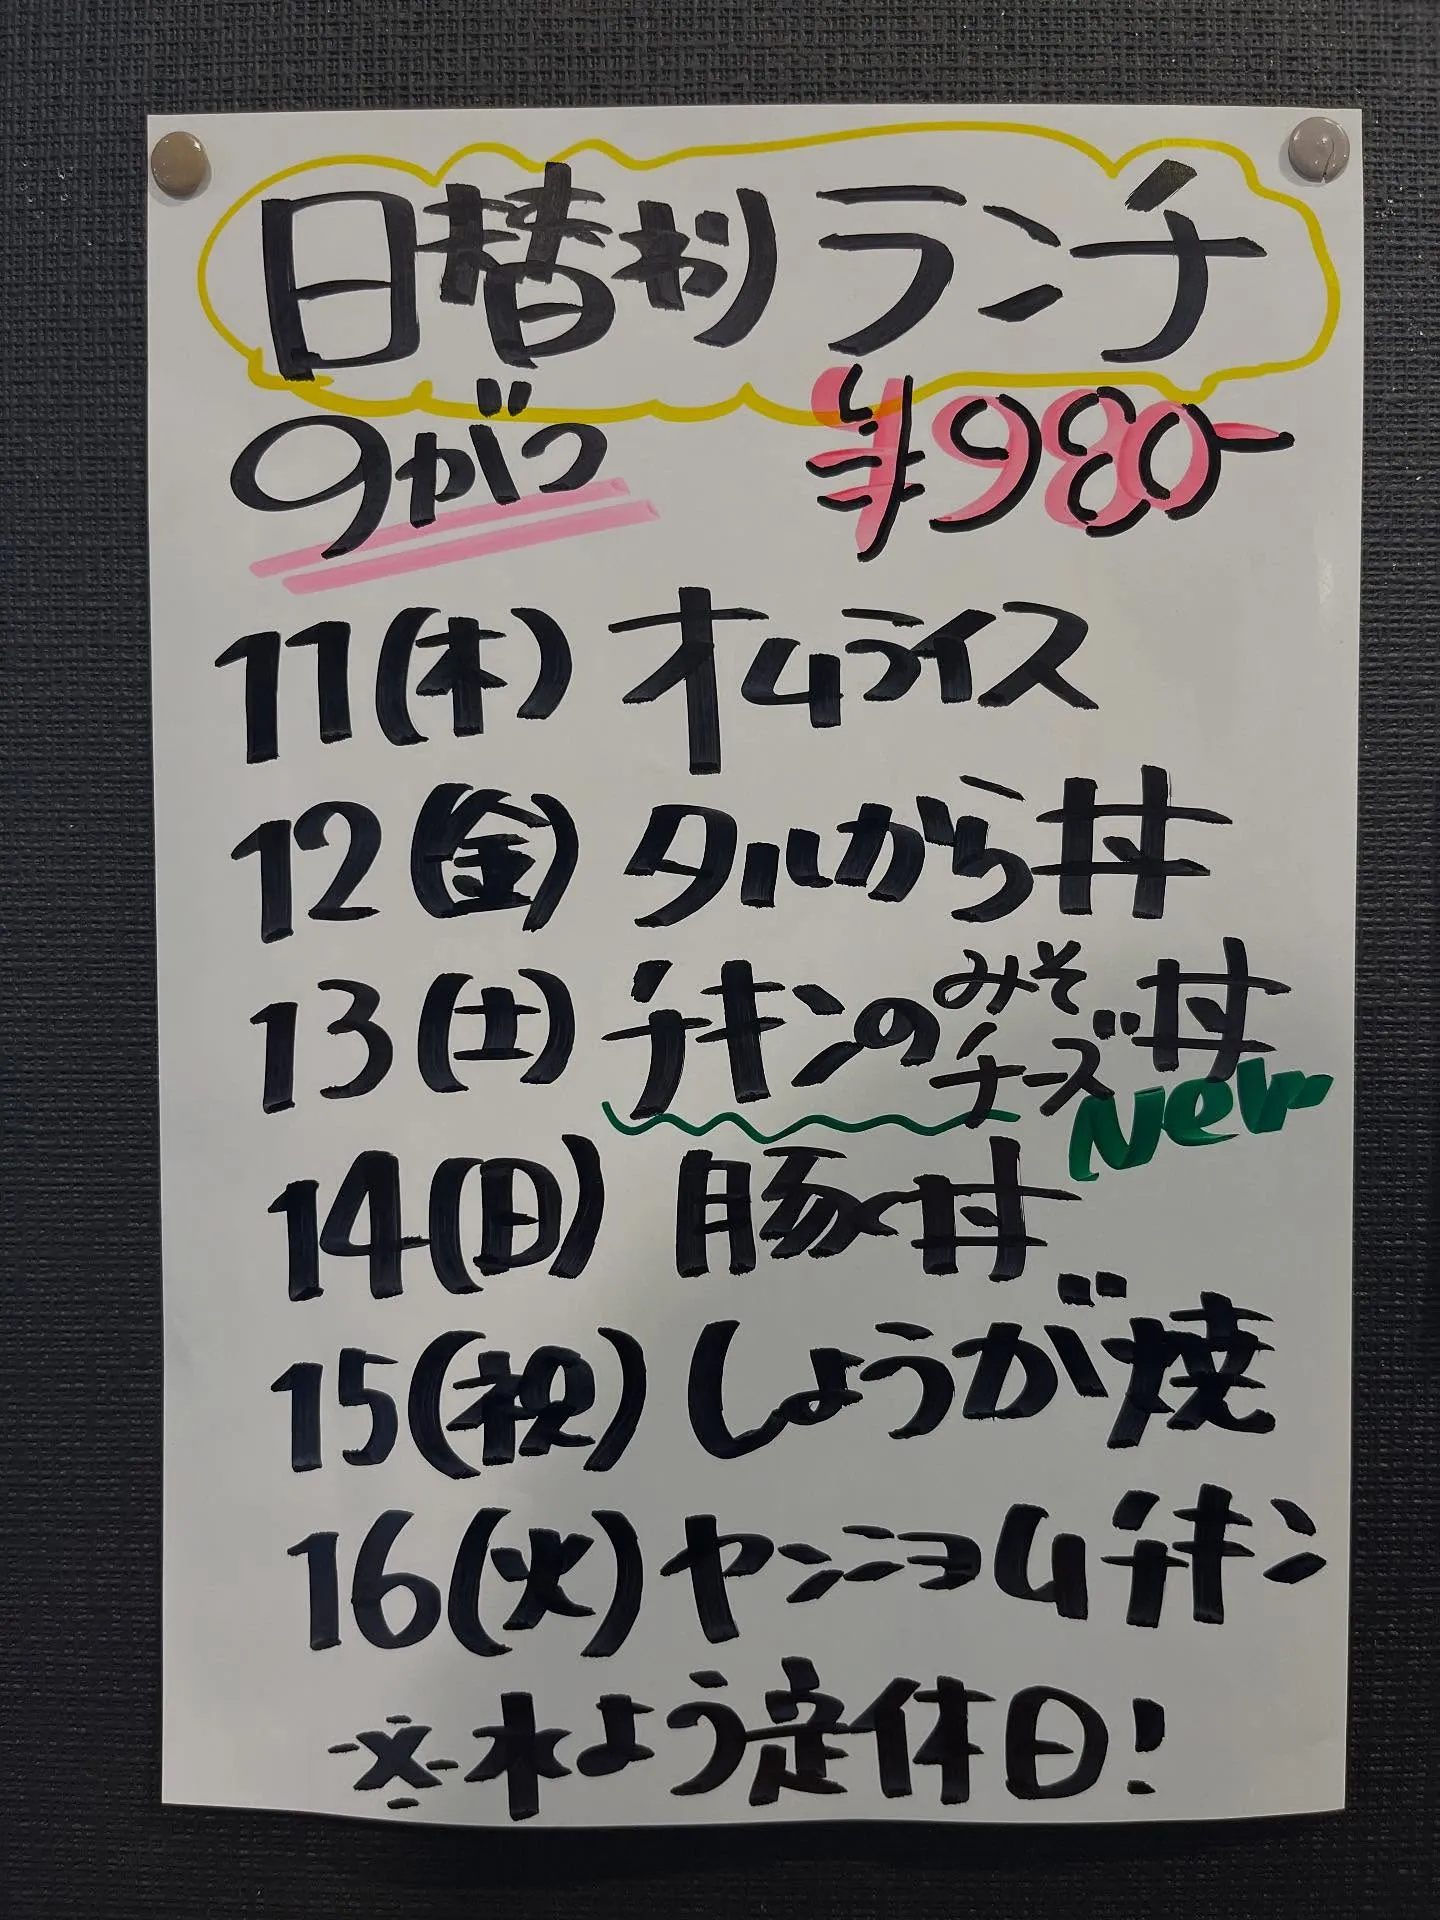 日替わりランチ
9がつ ¥980-
11(木) オムライス
12(金) タルから丼
13(土) チキンのみそチーズ丼
New
14(日) 豚丼
15(祝) しょうが焼
16(火) ヤンニョムチキン
※水よう定休日!